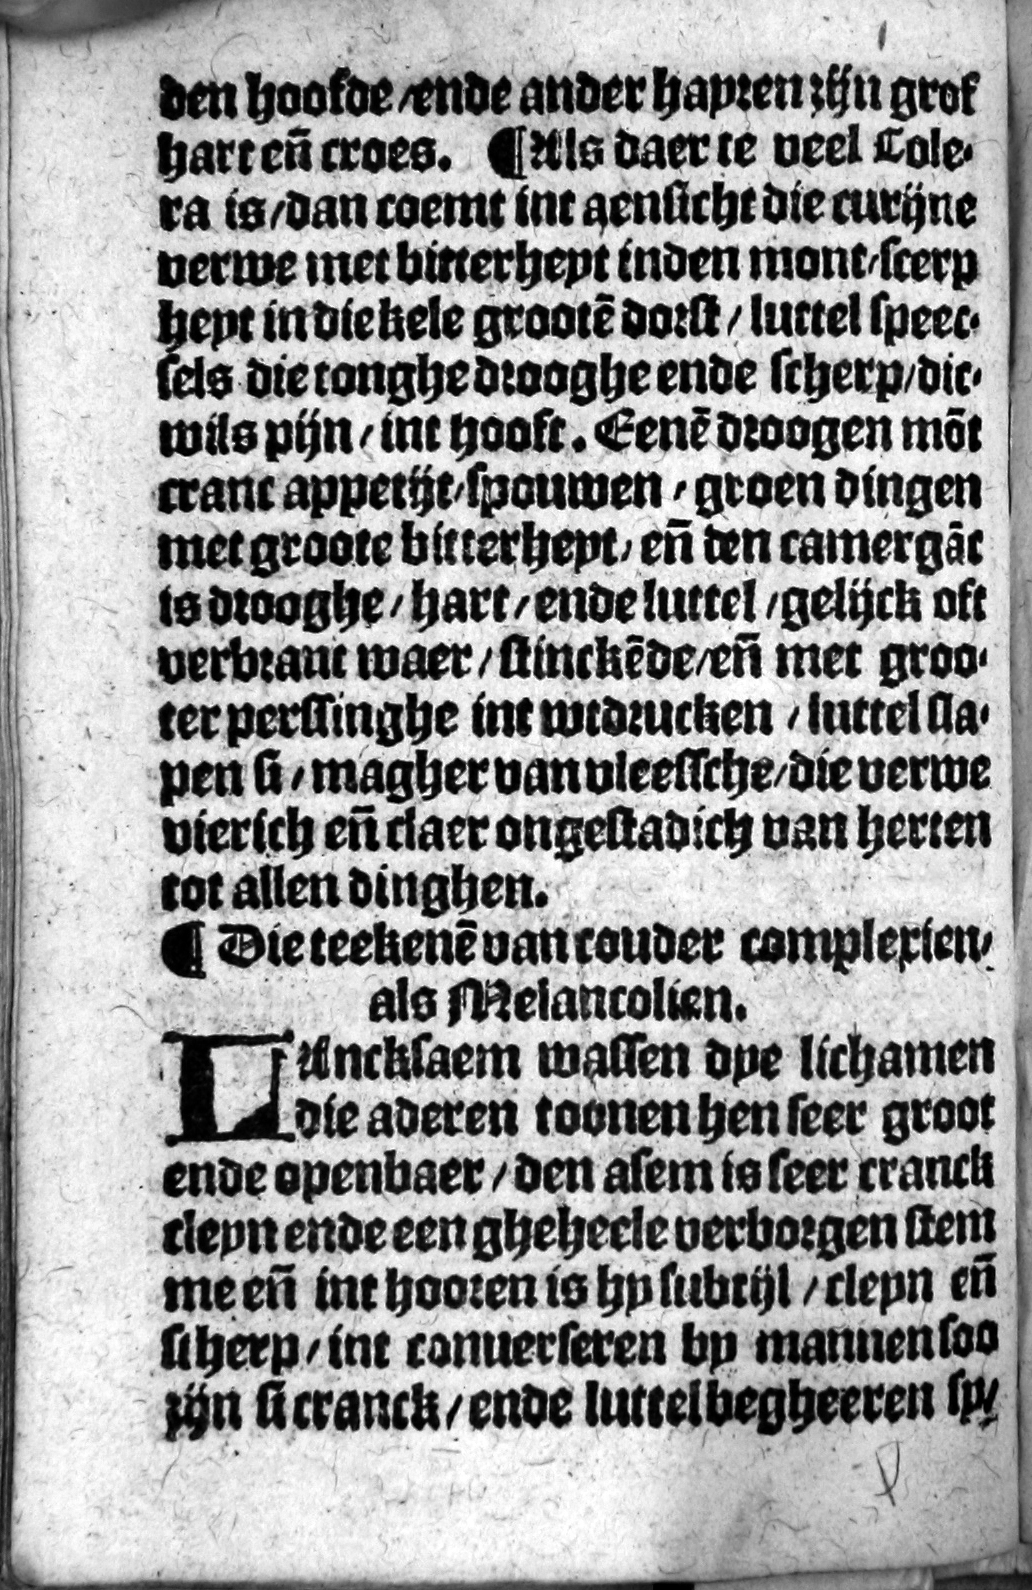 den hoofde/ende ander hayren zijn grof
hart eñ croes. ¶Als daer te veel Cole-
ra is/dan coemt int aensicht die curijne
verwe met bitterheyt inden mont/scerp
heyt in die kele grootē dorst/ luttel speec-
sels die tonghe drooghe ende scherp/dic-
wils pijn/ int hooft. Eenē droogen mōt
cranc appetijt/spouwen/ groen dingen
met groote bitterheyt/ eñ den camergāc
is drooghe/ hart/ ende luttel/gelijck oft
verbrant waer/ stinckēde/eñ met groo-
ter perssinghe int wtdrucken / luttel sla-
pen si/ magher van vleessche/die verwe
vierich eñ claer ongestadich van herten
tot allen dinghen.
¶ Die teekenē van couder complexien/
als Melancolien.
LAncksaem wassen dye lichamen
die aderen toonen hen seer groot
ende openbaer/ den asem is seer cranck
cleyn ende een gheheele verborgen stem
me eñ int hooren is hy subtijl / cleyn eñ
scherp/ int converseren by mannen soo
zijn si cranck/ ende luttel begheeren sy/